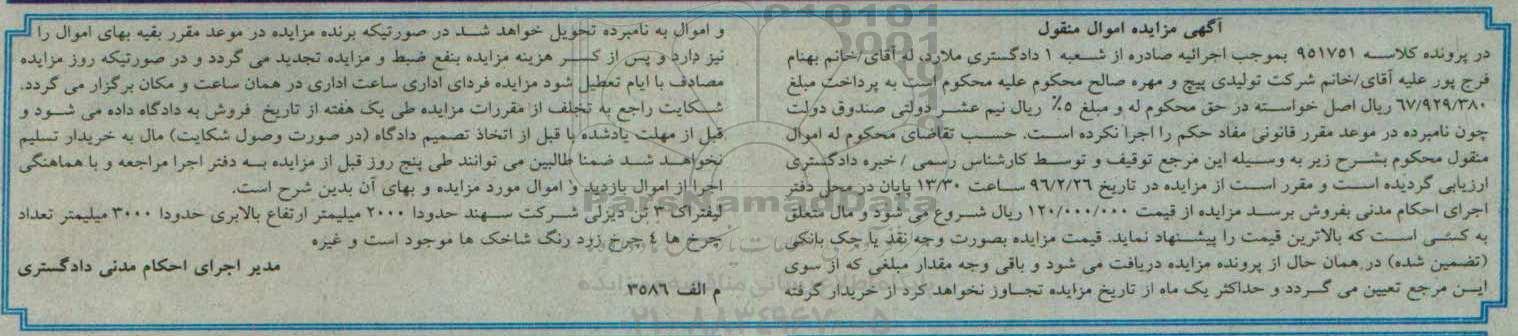 آگهی مزایده اموال منقول
در پرونده کلاسه ۹۵۱۷۵۱ بموجب اجرائیه صادره از شعبه ۱ دادگستری ملارد، له آقای/خانم بهنام
فرج پور علیه آقای/خانم شرکت تولیدی پیچ و مهره صالح محکوم علیه محکوم است به پرداخت مبلغ
۶۷/۹۲۹/۳۸۰ ریال اصل خواسته در حق محکوم له و مبلغ ۵٪ ریال نیم عشر دولتی صندوق دولت
چون نامبرده در موعد مقرر قانونی مفاد حکم را اجرا نکرده است. حسب تقاضای محکوم له اموال
منقول محکوم بشرح زیر به وسیله این مرجع توقیف و توسط کارشناس رسمی / خبره دادگستری
ارزیابی گردیده است و مقرر است از مزایده در تاریخ ۹۶/۲/۲۶ ساعت ۱۳/۳۰ پایان در محل دفتر
اجرای احکام مدنی بفروش برسد مزایده از قیمت ۱۲۰/۰۰۰/۰۰۰ ریال شروع می شود و مال متعلق
به کسی است که بالاترین قیمت را پیشنهاد نماید. قیمت مزایده بصورت وجه نقد یا چک بانکی
(تضمین شده) در همان حال از پرونده مزایده دریافت می شود و باقی وجه مقدار مبلغی که از سوی
این مرجع تعیین می گردد و حداکثر یک ماه از تاریخ مزایده تجاوز نخواهد کرد از خریدار گرفته
و اموال به نامبرده تحویل خواهد شد در صورتیکه برنده مزایده در موعد مقرر بقیه بهای اموال را
نیز دارد و پس از کسر هزینه مزایده بنفع ضبط و مزایده تجدید می گردد و در صورتیکه روز مزایده
مصادف با ایام تعطیل شود مزایده فردای اداری ساعت اداری در همان ساعت و مکان برگزار می گردد.
شکایت راجع به تخلف از مقررات مزایده طی یک هفته از تاریخ فروش به دادگاه داده می شود و
قبل از مهلت یادشده یا قبل از اتخاذ تصمیم دادگاه (در صورت وصول شکایت) مال به خریدار تسلیم
نخواهد شد ضمنا طالبین می توانند طی پنج روز قبل از مزایده به دفتر اجرا مراجعه و با هماهنگی
اجرا از اموال بازدید و اموال مورد مزایده و بهای آن بدین شرح است.
لیفتراک ۳ تن دیزلی شرکت سهند حدودا ۲۰۰۰ میلیمتر ارتفاع بالابری حدودا ۳۰۰۰ میلیمتر تعداد
چرخ ها ۴ چرخ زرد رنگ شاخک ها موجود است و غیره
مدیر اجرای احکام مدنی دادگستری
م الف ۳۵۸۶
ParsNamadData